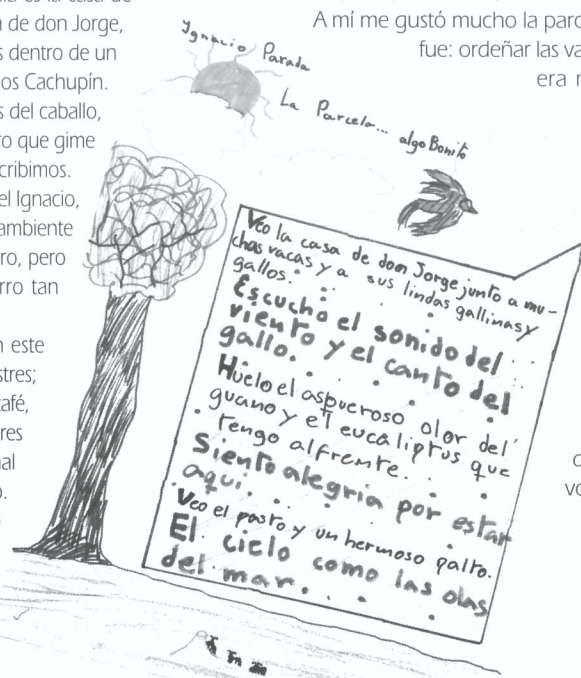 a de don Jorge,
s dentro de un
os Cachupín.
s del caballo,
ro que gime
cribimos.
el Ignacio,
ambiente
ro, pero
rro tan
n este
stres;
afé,
res
nal
o.
A mí me gustó mucho la parc
fue: ordeñar las va
era
Ignacio Parada
La Parcela... algo Bonito
Veo la casa de don Jorge junto a mu-
chas vacas y a sus lindas gallinas y
gallos.
Escucho el sonido del
viento y el canto del
gallo.
Huelo el aspueroso olor del
guano y el eucaliptus que
tengo alfrente.
Siento alegria por estar
aquí.
Veo el pasto y un hermoso palto.
El cielo como las olas
del mar...
vo